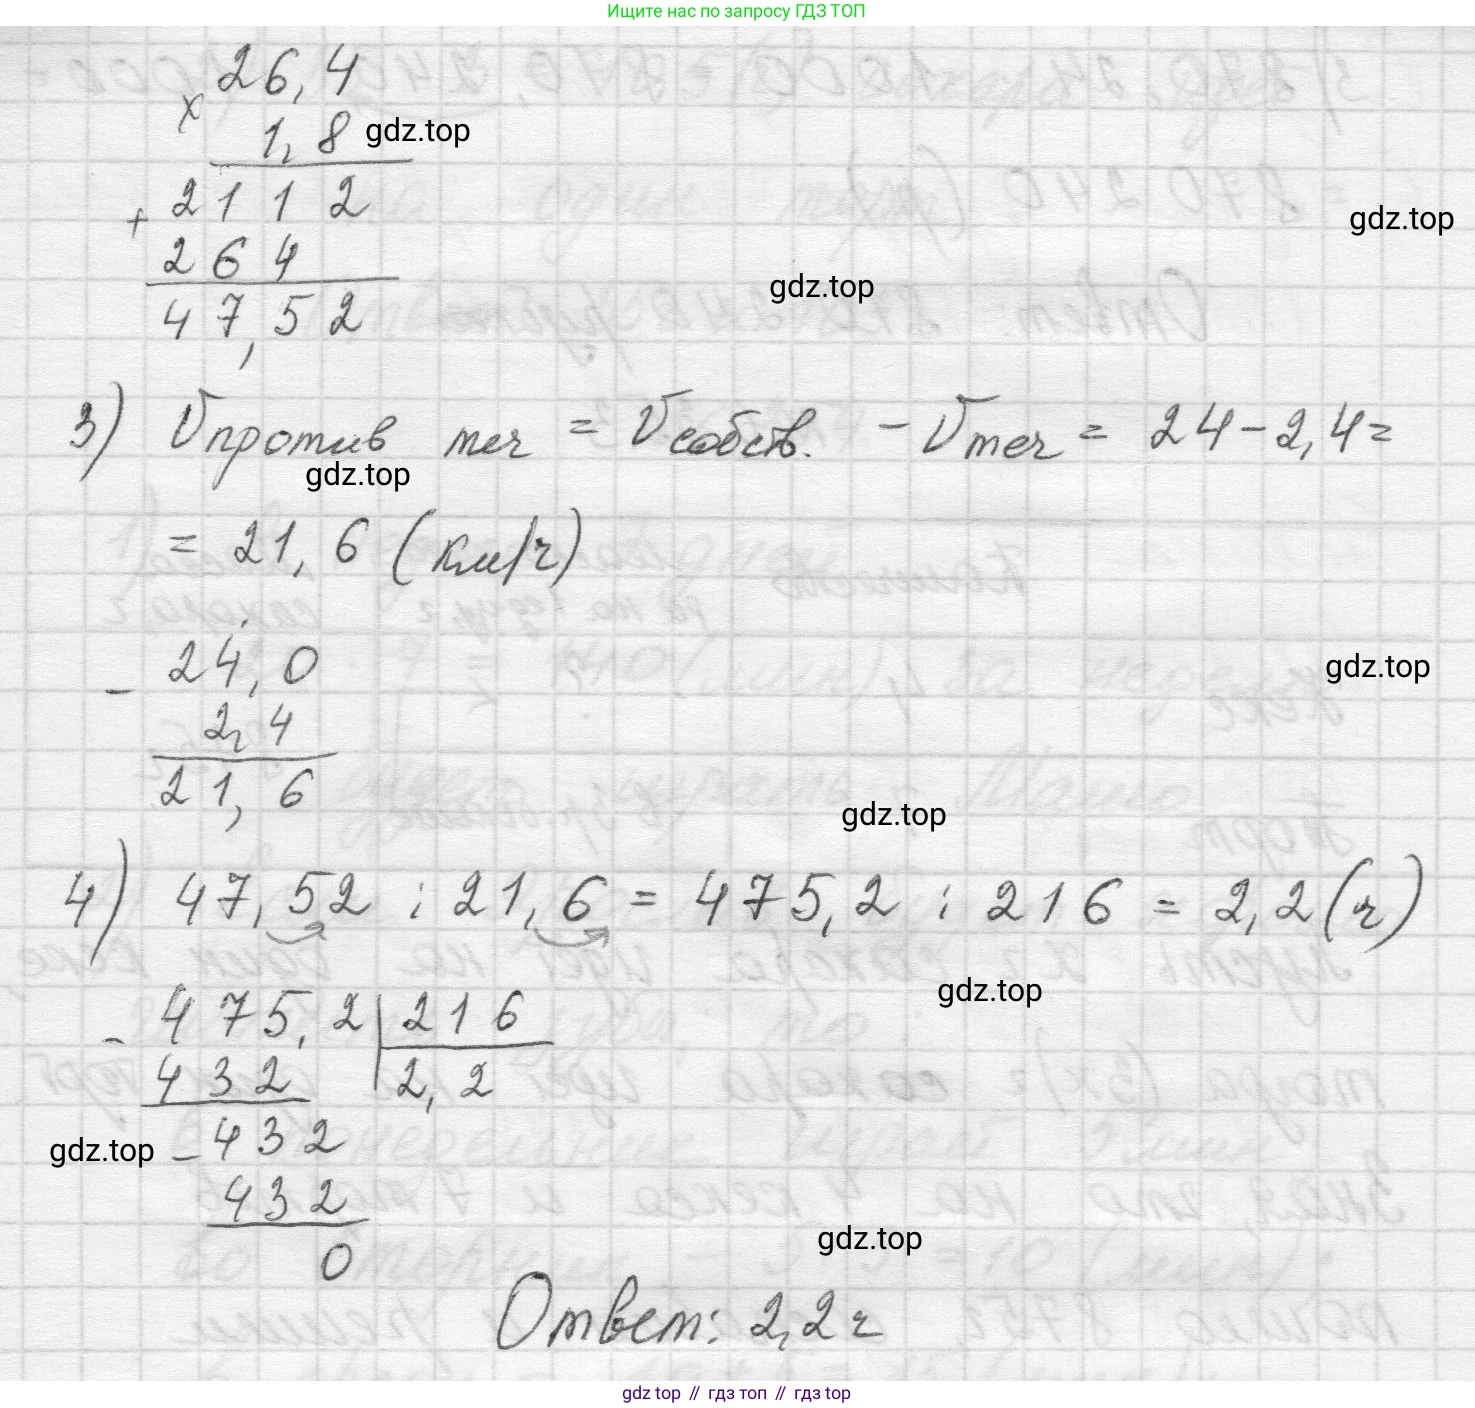 Ищите нас по запросу ГДЗ ТОП
26,4
× 1,8 gdz.top
+ 2112
gdz.top
264
gdz.top
47,52
3) Vпротив теч = Vсобств. - Vтеч = 24 - 2,4 =
gdz.top
= 21,6 (км/ч)
- 24,0
gdz.top
2,4
21,6
gdz.top
4) 47,52 : 21,6 = 475,2 : 216 = 2,2 (ч)
gdz.top
- 475,2 | 216
432 2,2
gdz.top - 432
432
gdz.top
0
Ответ: 2,2 ч
gdz top // гдз топ // гдз top